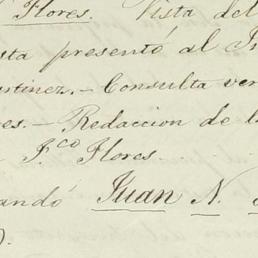 Flores. Vista del
sta presentó al
artinez.— Consulta ver
es.— Redaccion de l
Fco Flores.
ando Juan N.
).